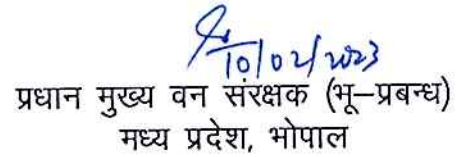 10/02/2023
प्रधान मुख्य वन संरक्षक (भू–प्रबन्ध)
मध्य प्रदेश, भोपाल